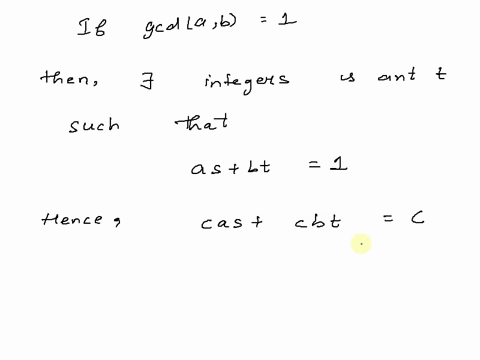 If gcd(a,b) = 1
then, ∃ integers is ant t
such that
as + bt = 1
Hence, cas + cbt = c